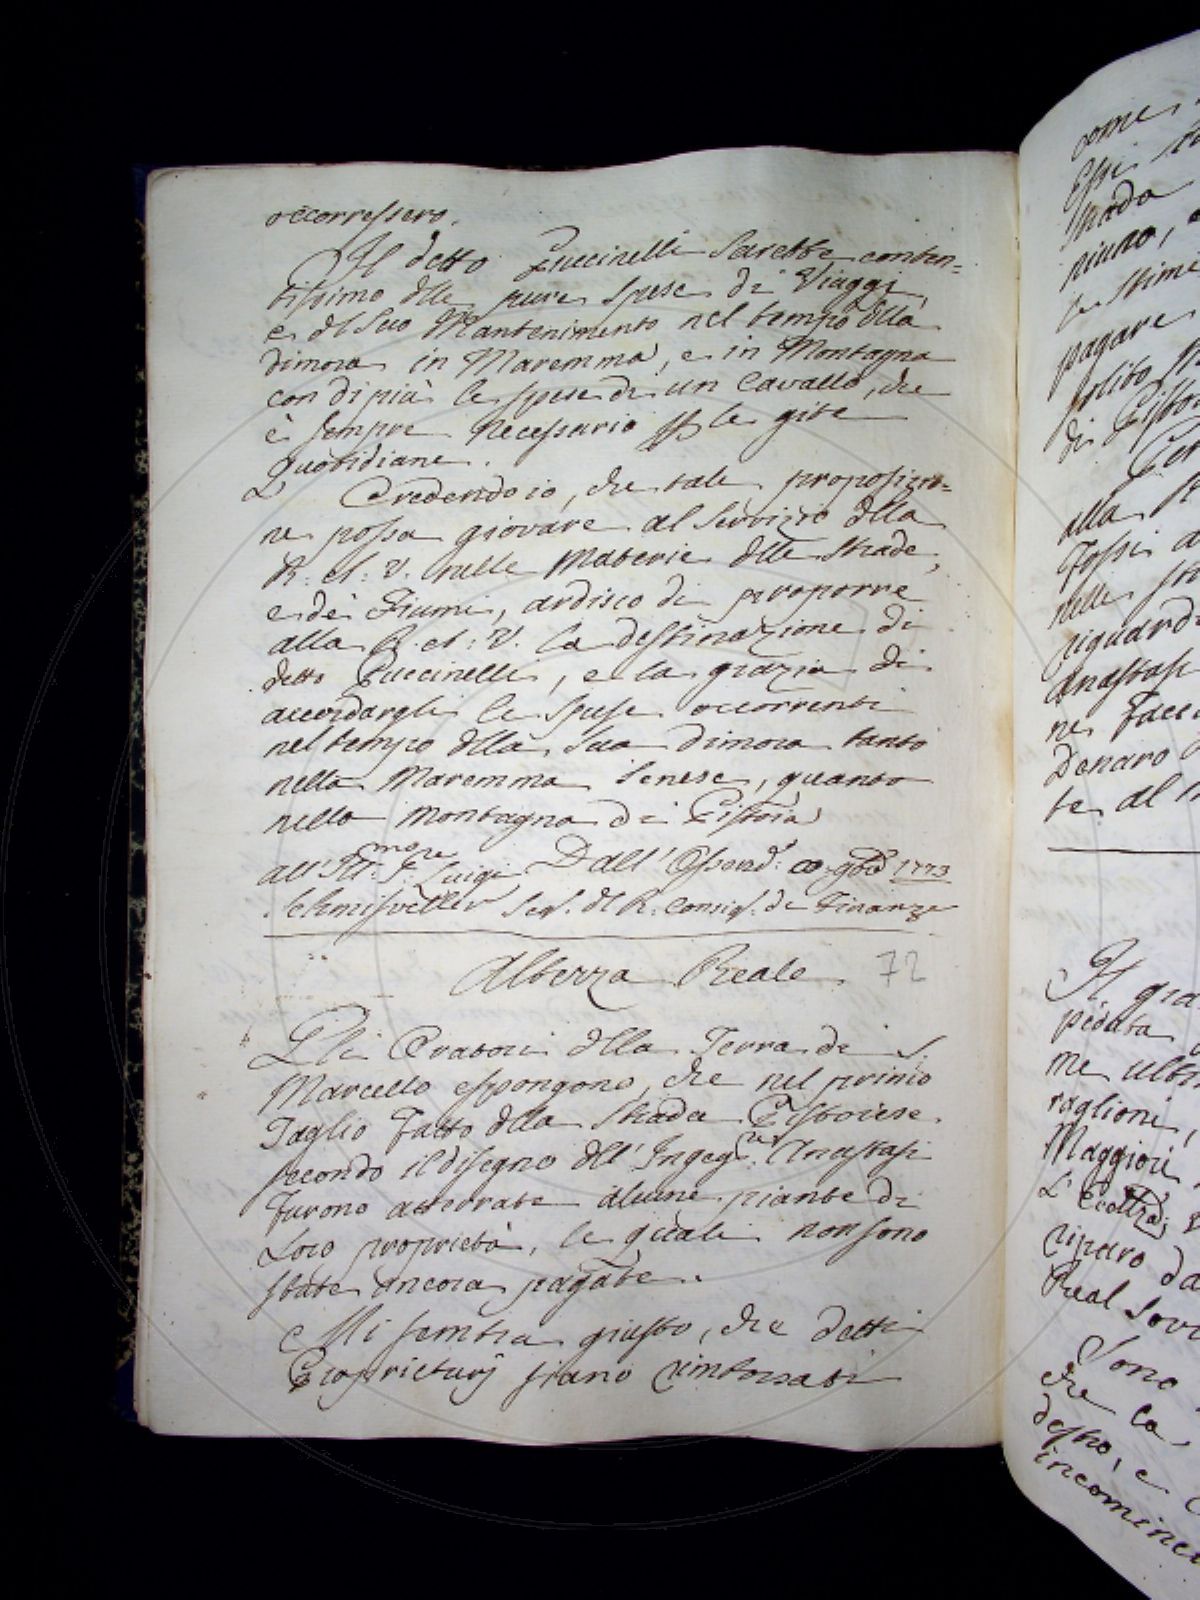 occorressero.
Il detto Puccinelli sarebbe conten=
tissimo dlle pure spese di Viaggi,
e dl suo Mantenimento nel tempo dlla
dimora in Maremma, e in Montagna
con di più le spese di un Cavallo, che
è sempre necessario le gite
Quotidiane.
Credendo io, che tale proposizio=
ne possa giovare al servizio dlla
R: A: V. nelle Materie dlle strade,
e de' Fiumi, ardisco di proporre
alla R. A: V. la destinazione di
detto Puccinelli, e la grazia di
accordargli le spese occorrenti
nel tempo dlla sua dimora tanto
nella Maremma Senese, quanto
nella Montagna di Pistoia
all' Ill:mo Sre Luigi Dall' 1773
Schmisveller Seg. dl R: Consig. di Finanze
Altezza Reale 72
Gli Oratori dlla Terra di S.
Marcello espongono, che nel primo
Taglio fatto dlla strada Pistoiese
secondo il disegno dll' Ingegre: Anastasi
furono atterrate alcune piante di
Loro proprietà, le quali non sono
state ancora pagate.
Mi sembra giusto, che detti
Proprietarj siano rimborsati
come
Essi
strada
pagare
solito
di
alla
Fossi
nelle
riguard
Anastasi
ne facc
Denaro
te al
Il gra
pedata
me ulti
raglioni,
Maggiori
L'
riparo da
Real Sovr
Sono
che la
destro, e
incominci